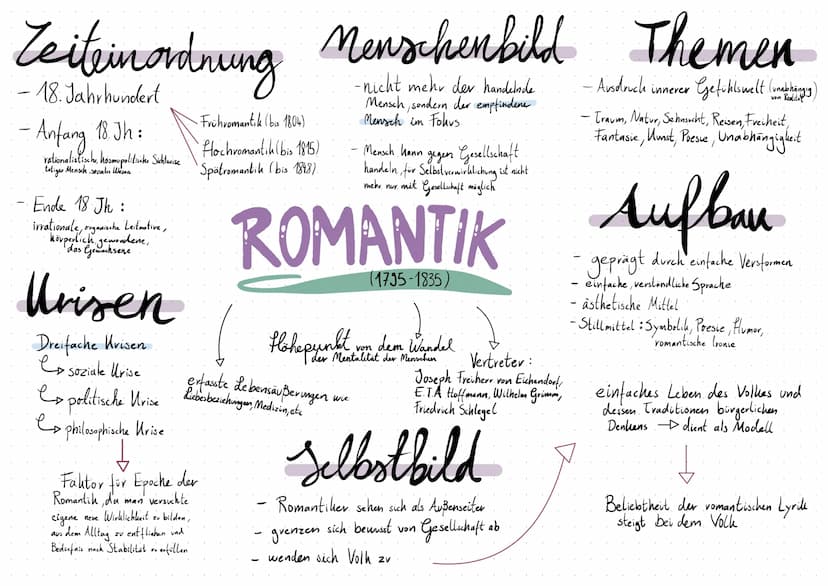 Zeiteinordnung
- 18. Jahrhundert
- Anfang 18. Jh:
rationalistische, kosmopolitische Sichtweise
tätiger Mensch, soziales Wesen
- Ende 18 Jh:
irrationale, organische Leitmotive,
körperlich gewordene,
das Gewachsene
Frühromantik (bis 1804)
Hochromantik (bis 1815)
Spätromantik (bis 1848)
Menschenbild
- nicht mehr der handelnde
Mensch, sondern der empfindene
Mensch im Fokus
- Mensch kann gegen Gesellschaft
handeln, für Selbstverwirklichung ist nicht
mehr nur mit Gesellschaft möglich
Themen
- Ausdruck innerer Gefühlswelt (unabhängig
von Realität)
- Traum, Natur, Sehnsucht, Reisen, Freiheit,
Fantasie, Kunst, Poesie, Unabhängigkeit
ROMANTIK
(1795-1835)
Aufbau
- geprägt durch einfache Versformen
- einfache, verständliche Sprache
- ästhetische Mittel
- Stillmittel: Symbolik, Poesie, Humor,
romantische Ironie
Krisen
Dreifache Krisen
soziale Krise
politische Krise
philosophische Krise
Faktor für Epoche der
Romantik, da man versuchte
eigene neue Wirklichkeit zu bilden,
aus dem Alltag zu entfliehen und
Bedürfnis nach Stabilität zu erfüllen
erfasste Lebensäußerungen wie
Liebesbeziehungen, Medizin, etc
Höhepunkt von dem Wandel
der Mentalität der Menschen
Vertreter:
Joseph Freiherr von Eichendorf,
E.T.A Hoffmann, Wilhelm Grimm,
Friedrich Schlegel
Selbstbild
- Romantiker sehen sich als Außenseiter
- grenzen sich bewusst von Gesellschaft ab
- wenden sich Volk zu
einfaches Leben des Volkes und
dessen Traditionen bürgerlichen
Denkens → dient als Modell
Beliebtheit der romantischen Lyrik
steigt bei dem Volk